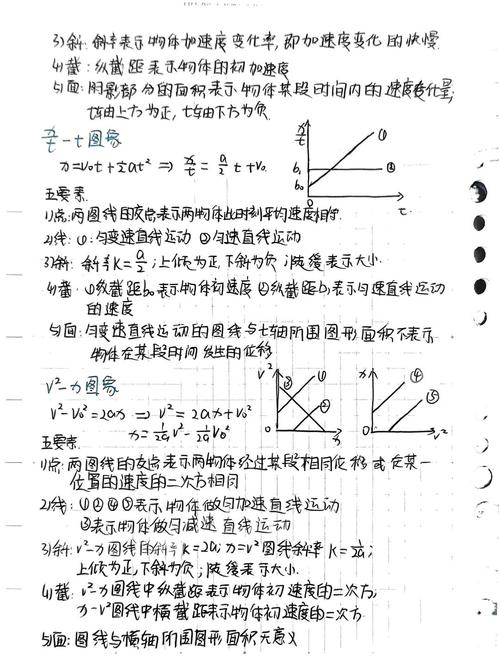 3)斜:斜率表示物体加速度变化率,即加速度变化的快慢
4)截:纵截距表示物体的初加速度
5)面:阴影部分的面积表示物体某段时间内的速度变化量;
t轴上方为正,t轴下方为负.
x/t-t图象
x=v₀t+½at² ⇒ x/t=a/2 t+v₀
x/t
①
b₁
②
b₀
0
t
五要素
1)点:两图线的交点表示两物体此时刻平均速度相同.
2)线:①:匀变速直线运动 ②匀速直线运动
3)斜:斜率k=a/2;上倾为正,下斜为负;陡缓表示大小.
4)截:①纵截距b₀表示物体初速度 ②纵截距b₁表示匀速直线运动
的速度
5)面:匀变速直线运动的图线与t轴所围图形面积不表示
物体在某段时间发生的位移
v²-x图象
v²-v₀²=2ax ⇒ v²=2ax+v₀²
x=1/2a v²-1/2a v₀²
v²
③
①
②
0
x
x
④
⑤
0
v²
五要素
1)点:两图线的交点表示两物体经过某段相同位移或在某一
位置的速度的二次方相同
2)线:①②④⑤表示物体做匀加速直线运动
③表示物体做匀减速直线运动
3)斜:v²-x图线的斜率k=2a;x-v²图线斜率k=1/2a;
上倾为正,下斜为负;陡缓表示大小.
4)截:v²-x图线中纵截距表示物体初速度的二次方;
x-v²图线中横截距表示物体初速度的二次方.
5)面:图线与横轴所围图形面积无意义